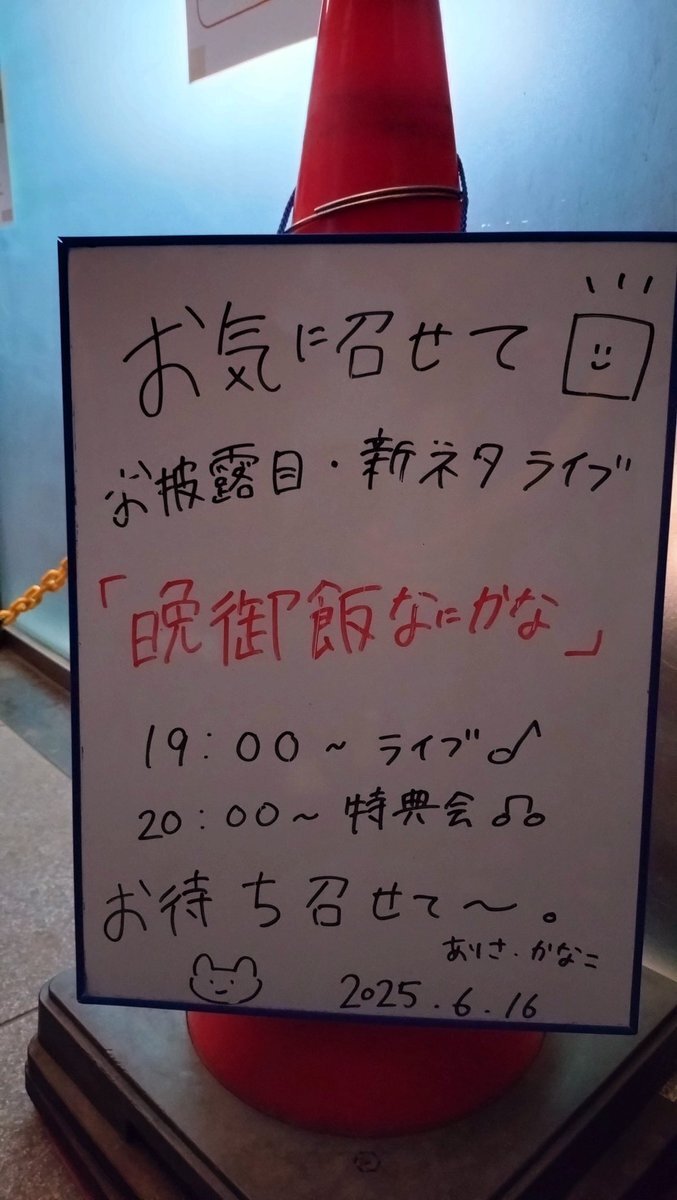 お気に召せて
お披露目・新ネタライブ
「晩御飯なにかな」
19:00~ライブ♪
20:00~特典会♫
お待ち召せて〜。
ありさ・かなこ
2025.6.16